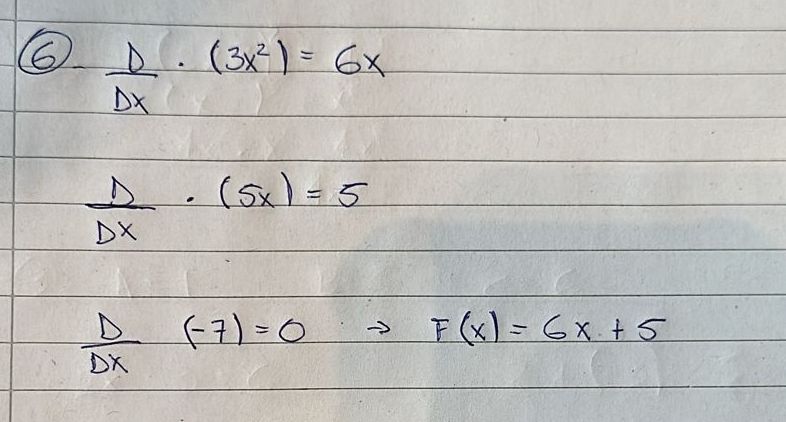 ⑥ D/DX · (3x²) = 6x
D/DX · (5x) = 5
D/DX (-7) = 0 → F(x) = 6x + 5